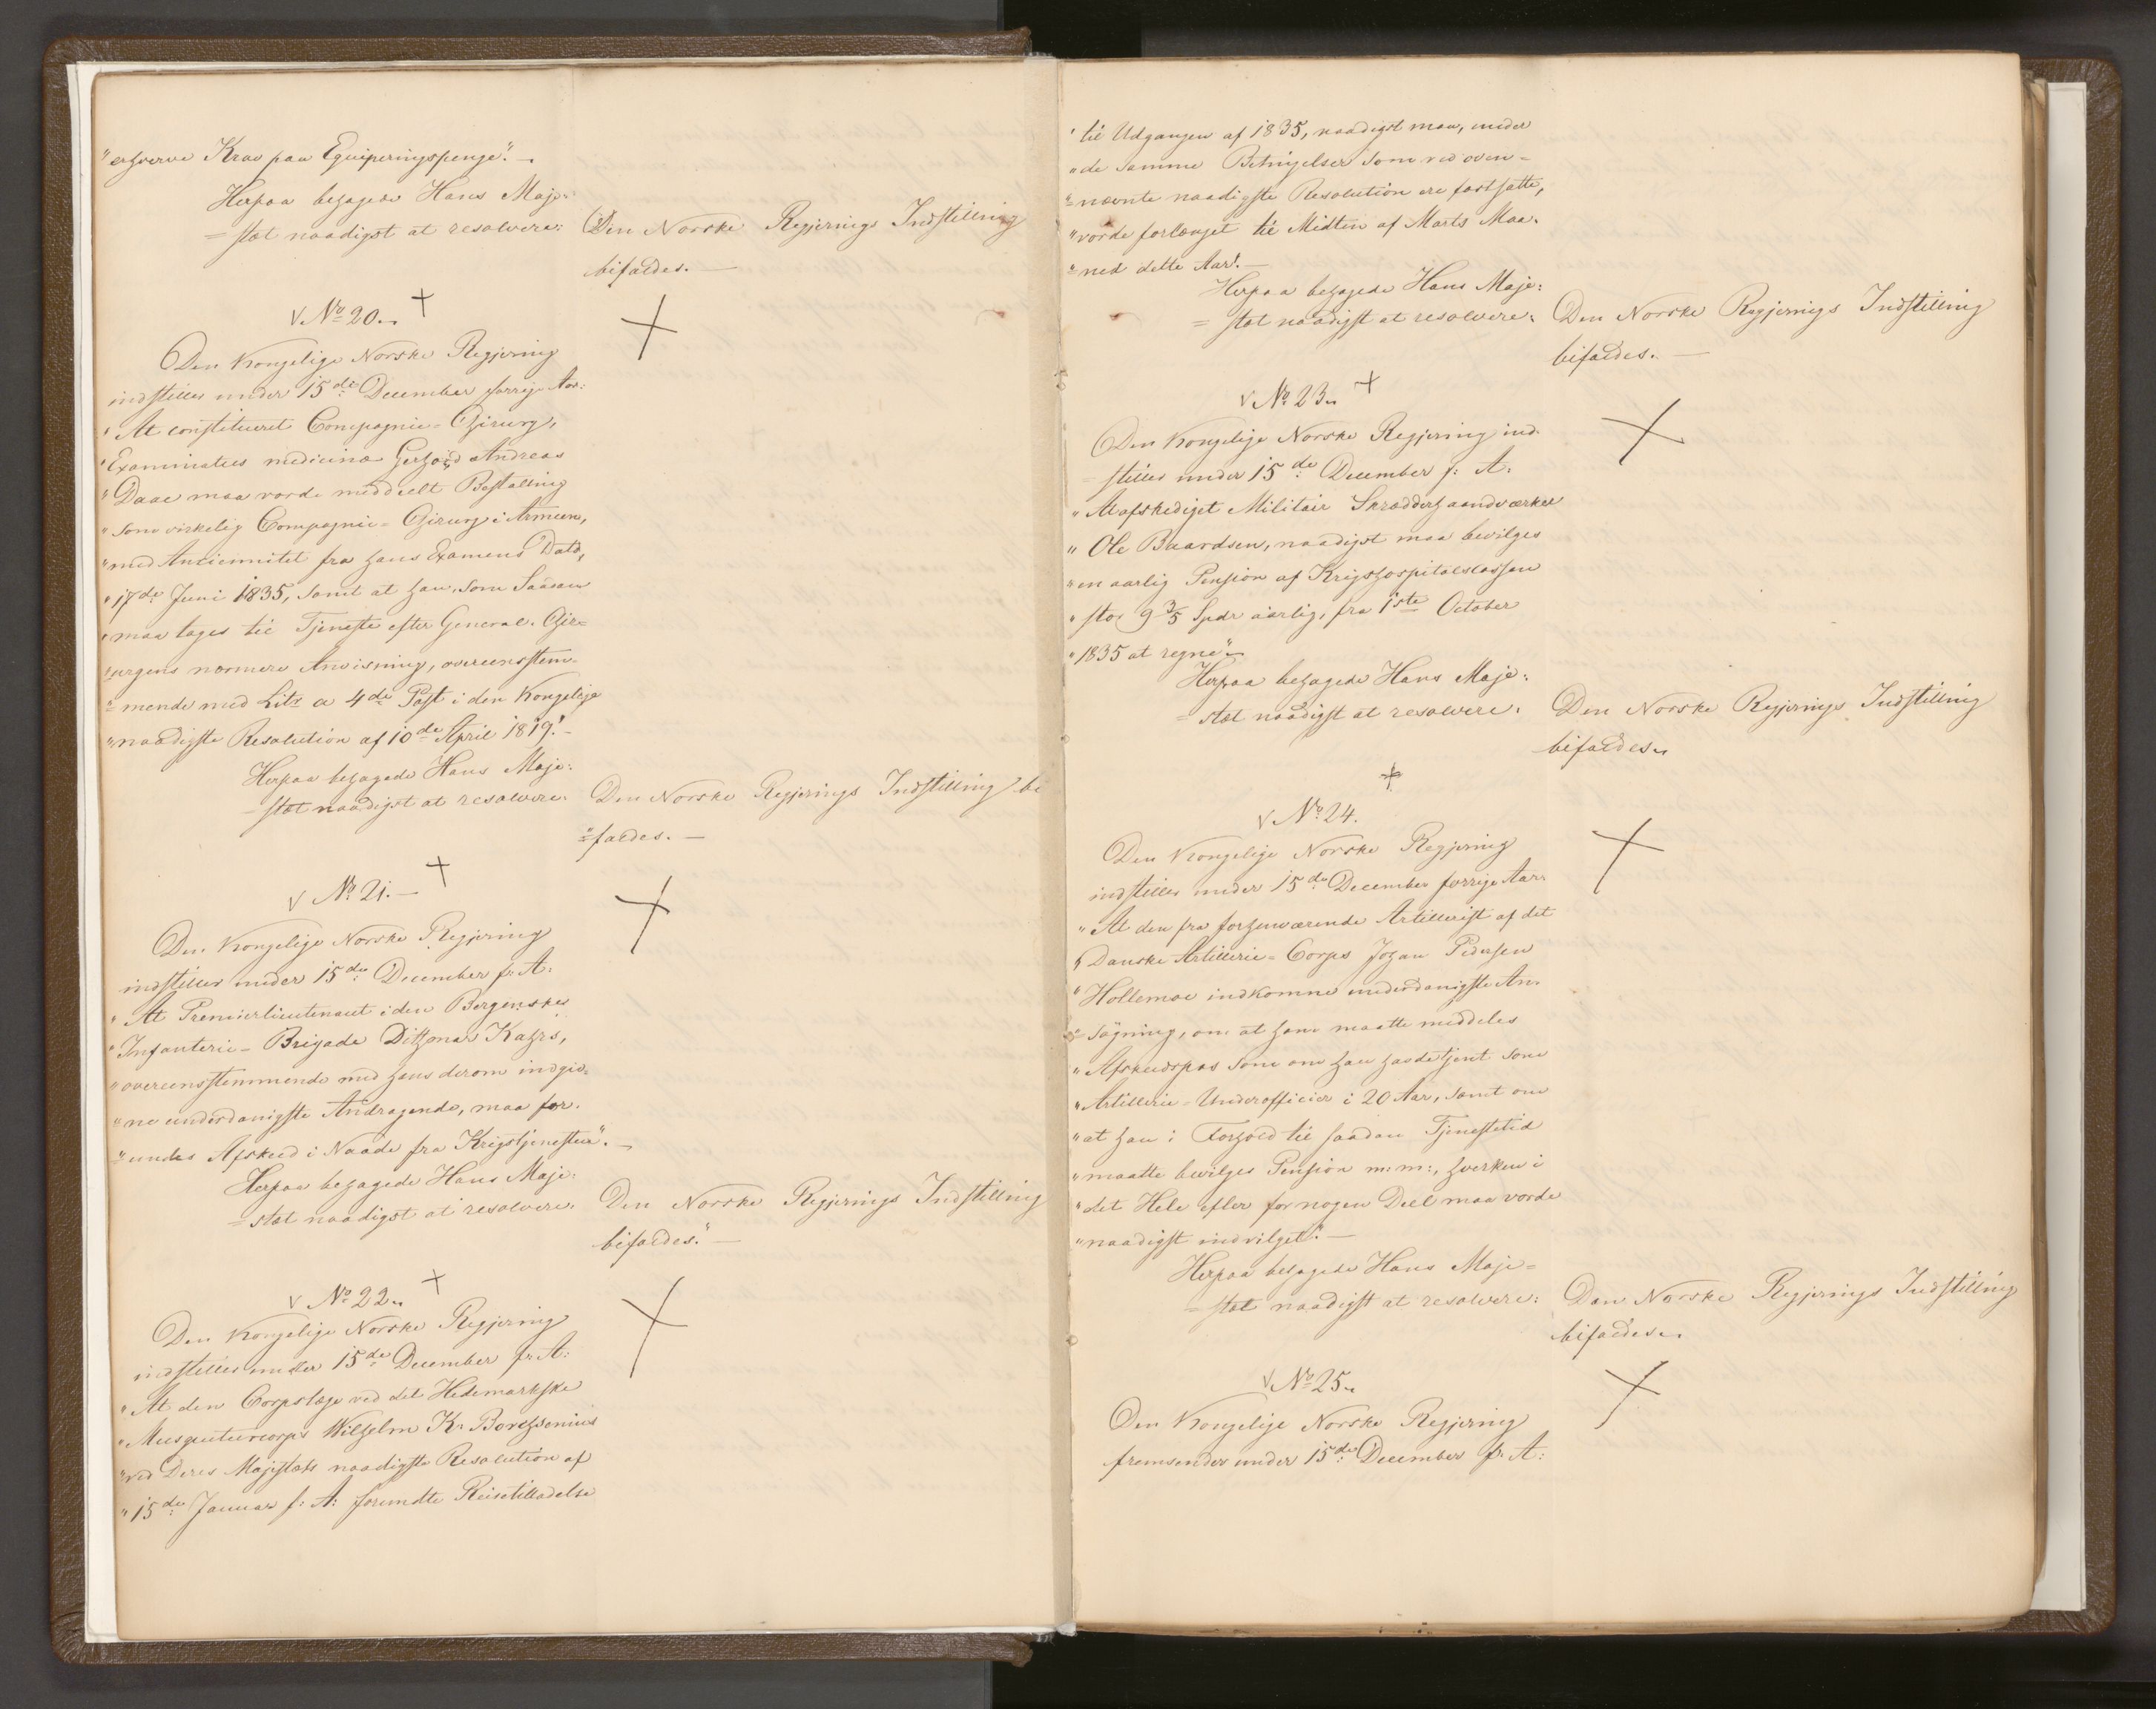 "erhverve Krav paa Equiperingspenge". —
Herpaa behagede Hans Maje:
= stæt naadigst at resolvere: Den Norske Regjerings Indstilling
bifaldes. —
√ No 20. +
Den Kongelige Norske Regjering
indstiller under 15de December forrige Aar:
"At constitueret Compagnie-Chirurg,
"Examinatus medicinæ Gerhard Andreas
"Daae maa vorde meddeelt Bestalling
"som virkelig Compagnie-Chirurg i Armeen,
"med Anciennitet fra hans Examens Dato,
"17de Juni 1835, samt at han, som Saadan
"maa tages til Tjeneste efter General-Chir=
"urgens nærmere Anviisning, overeensstem-
"mende med Litr a 4de Post i den Kongelige
"naadigste Resolution af 10de April 1819". —
Herpaa behagede Hans Maje:
= stæt naadigst at resolvere: Den Norske Regjerings Indstilling bi
=faldes. —
√ No 21. — +
Den Kongelige Norske Regjering
indstiller under 15de December f: A:
"At Premierlieutenant i den Bergenske
"Infanterie-Brigade Dithmar Kahrs,
"overeensstemmende med hans derom indgiv=
"ne underdanigste Andragende, maa for-
"undes Afskeed i Naade fra Krigstjenesten". —
Herpaa behagede Hans Maje:
= stæt naadigst at resolvere: Den Norske Regjerings Indstilling
bifaldes." —
√ No 22. +
Den Kongelige Norske Regjering
indstiller under 15de December f: A:
"At den Corpslæge ved det Hedemarkske
"Musqueteercorps Wilhelm K.
"ved Deres Majestæts naadigste Resolution af
"15de Januar f: A: forundte Reisetilladelse
"til Udgangen af 1835, naadigst maa, under
"de samme Betingelser som ved oven=
"nævnte naadigste Resolution ere fastsatte,
"vorde forlænget til Midten af Marts Maa-
"ned dette Aar". —
Herpaa behagede Hans Maje:
= stæt naadigst at resolvere: Den Norske Regjerings Indstilling
bifaldes. —
√ No 23. +
Den Kongelige Norske Regjering ind-
stiller under 15de December f: A:
"At afskediget Militair Skrædderhaandværker
"Ole Baardsen, naadigst maa bevilges
"en aarlig Pension af Krigshospitalscassen
"stor 9 3/5 Spdr aarlig, fra 1ste October
"1835 at regne".
Herpaa behagede Hans Maje:
= stæt naadigst at resolvere: Den Norske Regjerings Indstilling
bifaldes.
+
√ No 24.
Den Kongelige Norske Regjering
indstiller under 15de December forrige Aar:
"At den fra forhenværende Artillerist af det
"Danske Artillerie-Corps Johan Pedersen
"Hollemoe indkomne underdanigste An-
"søgning, om at ham maatte meddeles
"Afskeedspas som om han havde tjent som
"Artillerie-Underofficier i 20 Aar, samt om
"at han i Forhold til saadan Tjenestetid
"maatte bevilges Pension m: m:, hverken i
"det Hele eller for nogen Deel maa vorde
"naadigst indvilget". —
Herpaa behagede Hans Maje=
= stæt naadigst at resolvere: Den Norske Regjerings Indstilling
bifaldes.
√ No 25.
Den Kongelige Norske Regjering
fremsender under 15de December f: A: